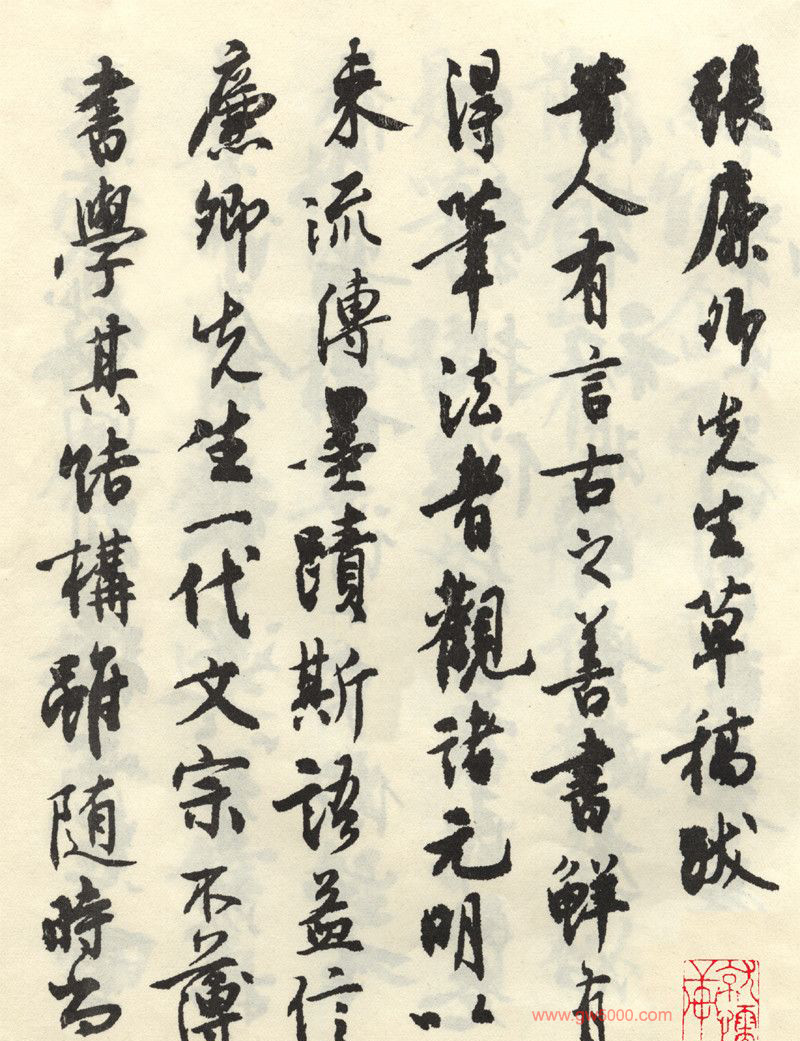 張廉卿先生草稿跋
昔人有言古之善書鮮有
得筆法者觀諸元明以
來流傳墨蹟斯語益信
廉卿先生一代文宗不薄
書學其結構雖隨時尚
www.gw5000.com